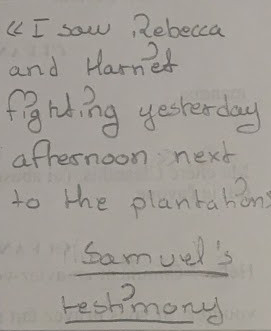 « I saw Rebecca
and Harriet
fighting yesterday
afternoon next
to the plantations
Samuel's
testimony